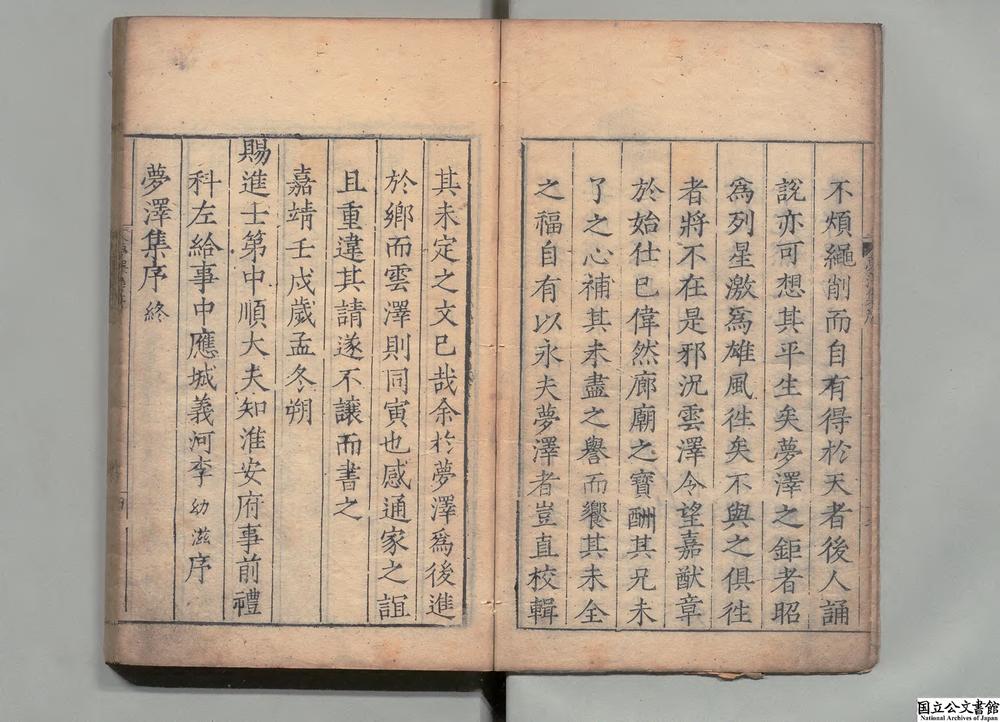 不煩繩削而自有得於天者後人誦
說亦可想其平生矣夢澤之鉅者昭
爲列星激爲雄風徃矣不與之俱徃
者將不在是邪況雲澤令望嘉猷章
於始仕已偉然廊廟之寶酬其兄未
了之心補其未盡之譽而饗其未全
之福自有以永夫夢澤者豈直校輯
其未定之文已哉余於夢澤爲後進
於鄉而雲澤則同寅也感通家之誼
且重違其請遂不讓而書之
嘉靖壬戌歲孟冬朔
賜進士第中順大夫知淮安府事前禮
科左給事中應城義河李幼滋序
夢澤集序終
国立公文書館
National Archives of Japan